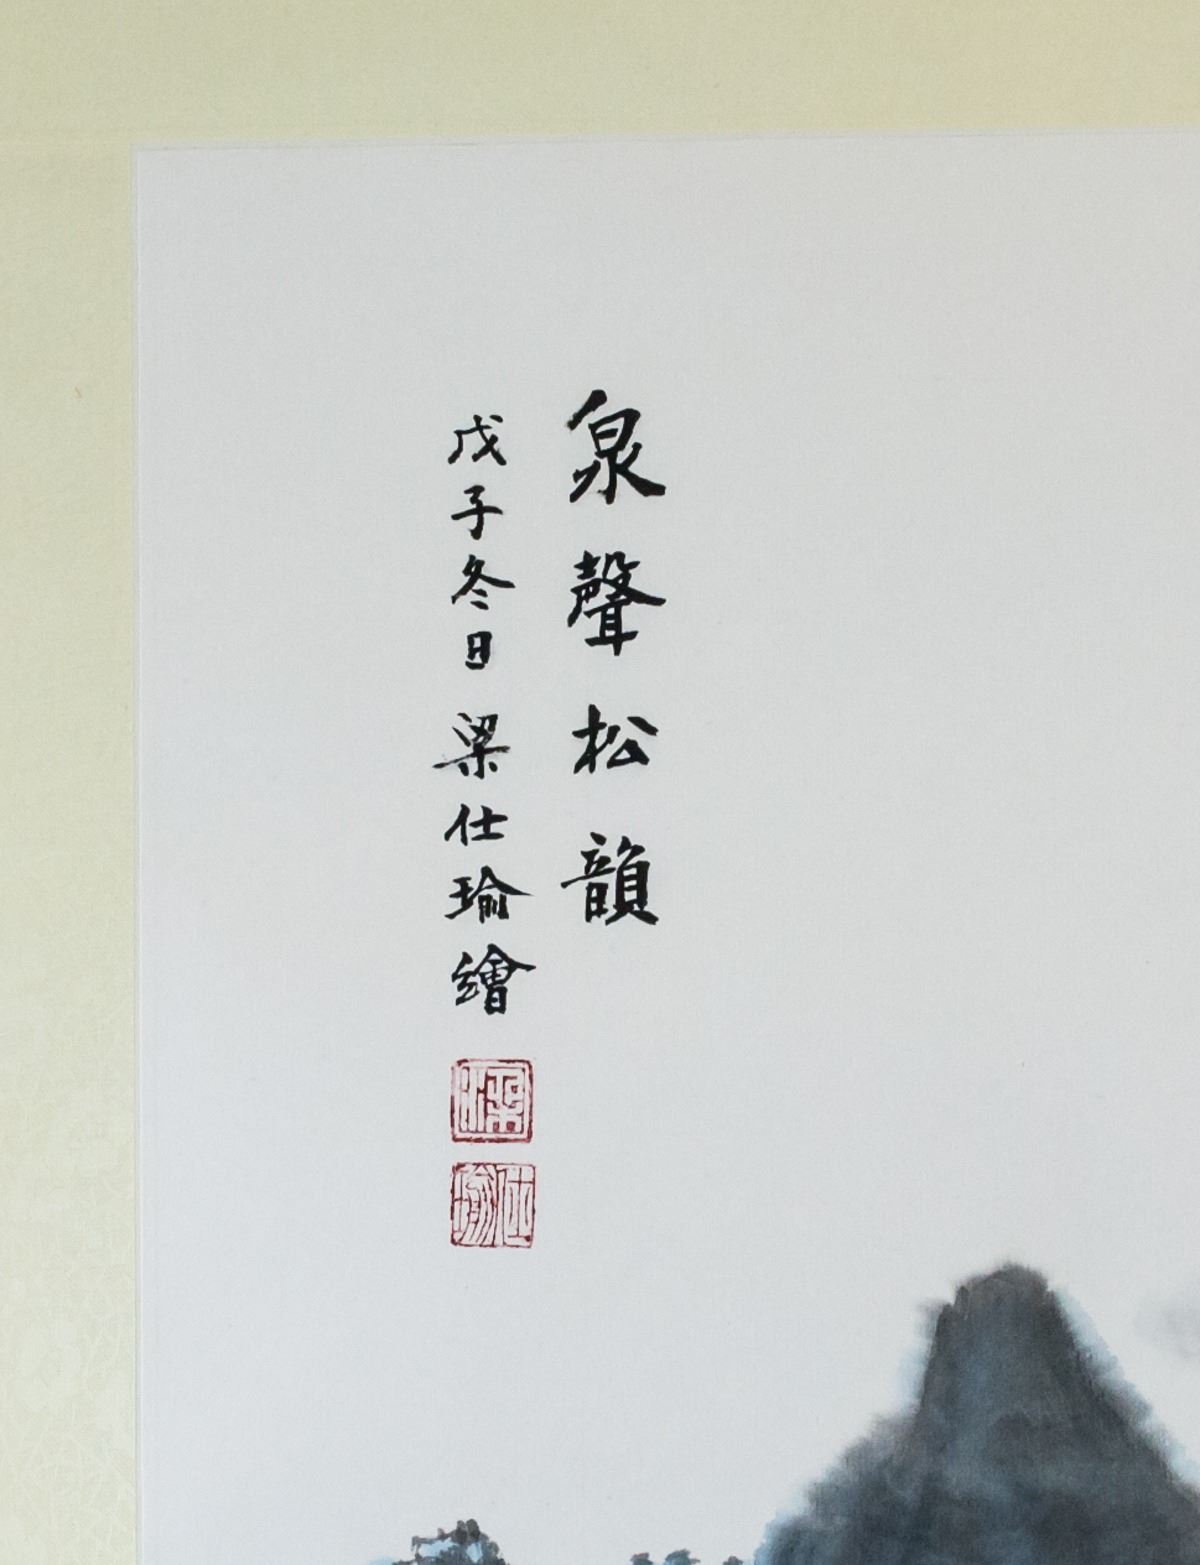 泉聲松韻
戊子冬日 梁仕瑜繪
梁
仕瑜